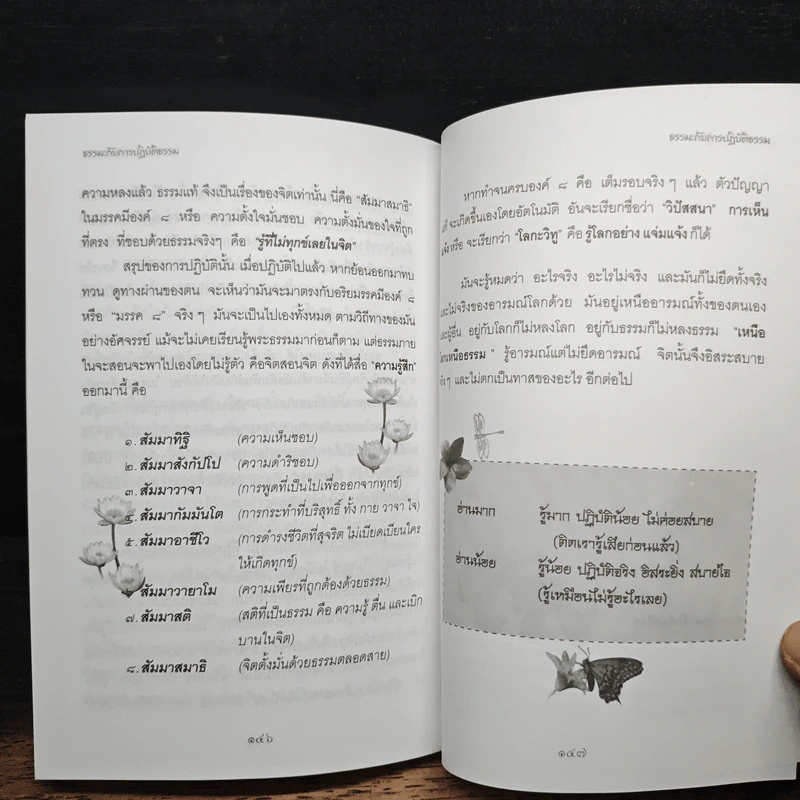 ธรรมะกับการปฏิบัติธรรม
ความหลงแล้ว ธรรมแท้ จึงเป็นเรื่องของจิตเท่านั้น นี่คือ "สัมมาสมาธิ"
ในมรรคมีองค์ ๘ หรือ ความตั้งใจมั่นชอบ ความตั้งมั่นของใจที่ถูก
ที่ตรง ที่ชอบด้วยธรรมจริงๆ คือ "รู้ที่ไม่ทุกข์เลยในจิต"
สรุปของการปฏิบัตินั้น เมื่อปฏิบัติไปแล้ว หากย้อนออกมาทบ
ทวน ดูทางผ่านของตน จะเห็นว่ามันจะมาตรงกับอริยมรรคมีองค์ ๘
หรือ "มรรค ๘" จริงๆ มันจะเป็นไปเองทั้งหมด ตามวิถีทางของมัน
อย่างอัศจรรย์ แม้จะไม่เคยเรียนรู้พระธรรมมาก่อนก็ตาม แต่ธรรมภาย
ในจะสอนจะพาไปเองโดยไม่รู้ตัว คือจิตสอนจิต ดังที่ได้สื่อ "ความรู้สึก"
ออกมานี้ คือ
๑. สัมมาทิฐิ (ความเห็นชอบ)
๒. สัมมาสังกัปโป (ความดำริชอบ)
๓. สัมมาวาจา (การพูดที่เป็นไปเพื่อออกจากทุกข์)
๔. สัมมากัมมันโต (การกระทำที่บริสุทธิ์ ทั้ง กาย วาจา ใจ)
๕. สัมมาอาชีโว (การดำรงชีวิตที่สุจริต ไม่เบียดเบียนใคร
ให้เกิดทุกข์)
๖. สัมมาวายาโม (ความเพียรที่ถูกต้องด้วยธรรม)
๗. สัมมาสติ (สติที่เป็นธรรม คือ ความรู้ ตื่น และเบิก
บานในจิต)
๘. สัมมาสมาธิ (จิตตั้งมั่นด้วยธรรมตลอดสาย)
๑๔๖
ธรรมะกับการปฏิบัติธรรม
หากทำจนครบองค์ ๘ คือ เต็มรอบจริงๆ แล้ว ตัวปัญญา
จะเกิดขึ้นเองโดยอัตโนมัติ อันจะเรียกชื่อว่า "วิปัสสนา" การเห็น
แจ้งหรือ จะเรียกว่า "โลกะวิทู" คือ รู้โลกอย่าง แจ่มแจ้ง ก็ได้
มันจะรู้หมดว่า อะไรจริง อะไรไม่จริง และมันก็ไม่ยึดทั้งจริง
และไม่จริงของอารมณ์โลกด้วย มันอยู่เหนืออารมณ์ทั้งของตนเอง
และผู้อื่น อยู่กับโลกก็ไม่หลงโลก อยู่กับธรรมก็ไม่หลงธรรม "เหนือ
โลกเหนือธรรม" รู้อารมณ์แต่ไม่ยึดอารมณ์ จิตนั้นจึงอิสระสบาย
จริงๆ และไม่ตกเป็นทาสของอะไร อีกต่อไป
อ่านมาก รู้มาก ปฏิบัติน้อย ไม่ค่อยสบาย
(ติตเรารู้เสียก่อนแล้ว)
อ่านน้อย รู้น้อย ปฏิบัติจริง อิสระยิ่ง สบายใจ
(รู้เหมือนไม่รู้อะไรเลย)
๑๔๗